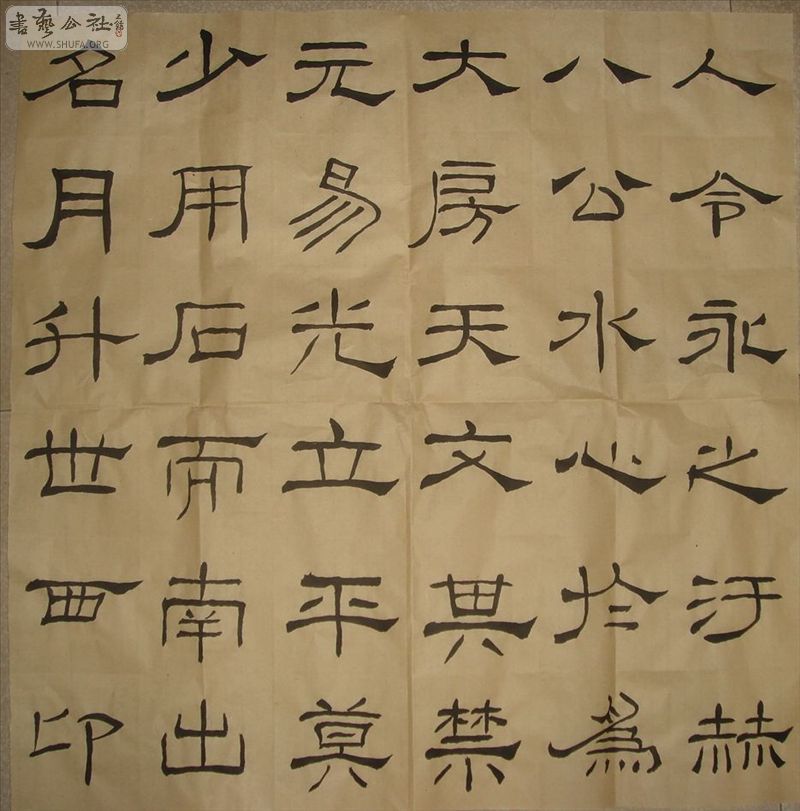 人令永之汙赫
八公水心於為
大房天文其禁
元易光立平莫
少用石而南出
名月升世西印
書藝公社
WWW.SHUFA.ORG